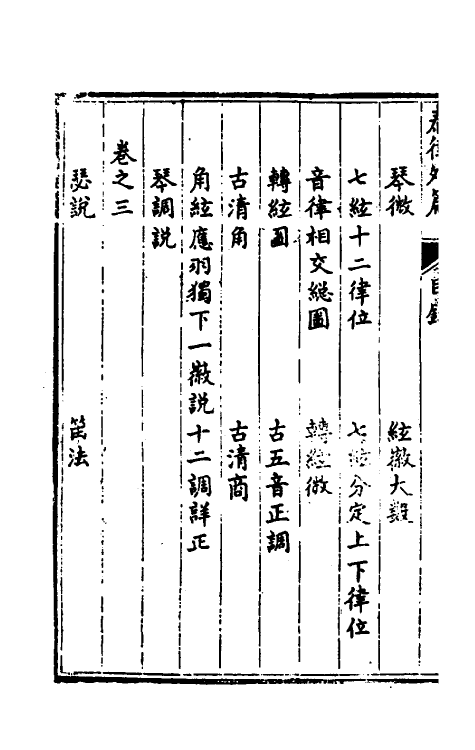 琴徽 絃徽大觀
七絃十二律位 七絃分定上下律位
音律相交總圖 轉絃徽
轉絃圖 古五音正調
古清角 古清商
角絃應羽獨下一徽說 十二調詳正
琴調說
卷之三
瑟說 笛法
目錄